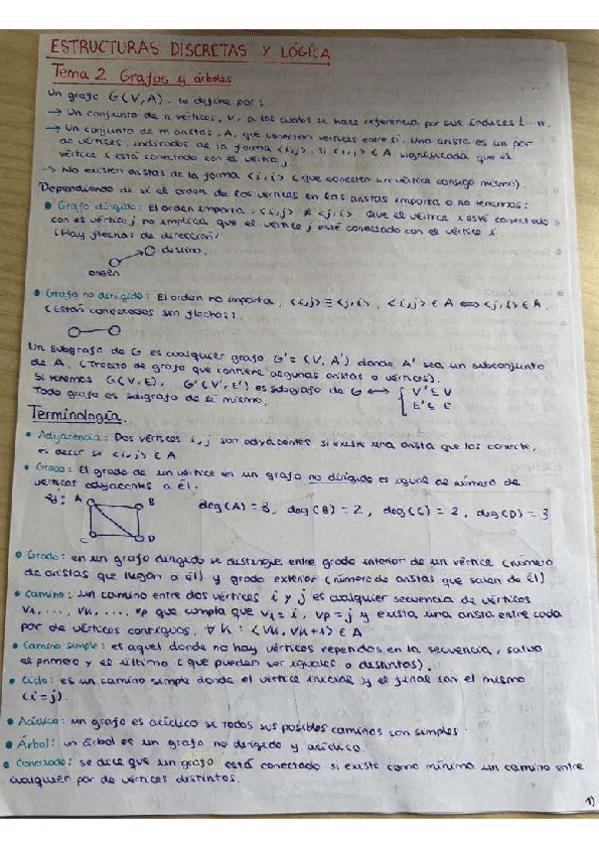 ESTRUCTURAS DISCRETAS Y LÓGICA
Tema 2. Grafos y árboles
Un grafo G(V,A), se define por:
→ Un conjunto de n vértices, V, a los cuales se hace referencia por sus índices 1... n.
→ Un conjunto de m aristas, A, que conectan vértices entre sí. Una arista es un par
de vértices, indicados de la forma <i,j>. Si <i,j> ∈ A significada que el
vértice i está conectado con el vértice j.
→ No existen aristas de la forma <i,i> (que conecten un vértice consigo mismo)
Dependiendo de si el orden de los vértices en las aristas importa o no tenemos:
• Grafo dirigido: El orden importa, <i,j> ≠ <j,i>. Que el vértice i esté conectado
con el vértice j no implica que el vértice j esté conectado con el vértice i.
(Hay flechas de dirección)
destino.
origen
• Grafo no dirigido: El orden no importa, <i,j> ≡ <j,i>, <i,j> ∈ A ⟺ <j,i> ∈ A.
(Están conectados sin flecha).
Un subgrafo de G es cualquier grafo G' = (V, A') donde A' sea un subconjunto
de A. (Trocito de grafo que contiene algunas aristas o vértices).
Si tenemos G(V,E), G'(V',E') es subgrafo de G ⟷ { V' ⊆ V
Todo grafo es subgrafo de sí mismo. E' ⊆ E
Terminología.
• Adyacencia: Dos vértices i,j son adyacentes si existe una arista que los conecte,
es decir si <i,j> ∈ A.
• Grado: El grado de un vértice en un grafo no dirigido es igual al número de
vértices adyacentes a él.
Ej: A B deg(A) = 3, deg(B) = 2, deg(C) = 2, deg(D) = 3
C D
• Grado: en un grafo dirigido se distingue entre grado interior de un vértice (número
de aristas que llegan a él) y grado exterior (número de aristas que salen de él).
• Camino: un camino entre dos vértices i y j es cualquier secuencia de vértices
V1, ..., Vk, ..., Vp que cumpla que V1 = i, Vp = j y exista una arista entre cada
par de vértices contiguos, ∀ k: <Vk, Vk+1> ∈ A
• Camino simple: es aquel donde no hay vértices repetidos en la secuencia, salvo
el primero y el último (que pueden ser iguales o distintos).
• Ciclo: es un camino simple donde el vértice inicial y el final son el mismo
(i = j).
• Acíclico: un grafo es acíclico si todos sus posibles caminos son simples.
• Árbol: un árbol es un grafo no dirigido y acíclico.
• Conectado: se dice que un grafo está conectado si existe como mínimo un camino entre
cualquier par de vértices distintos.
1)